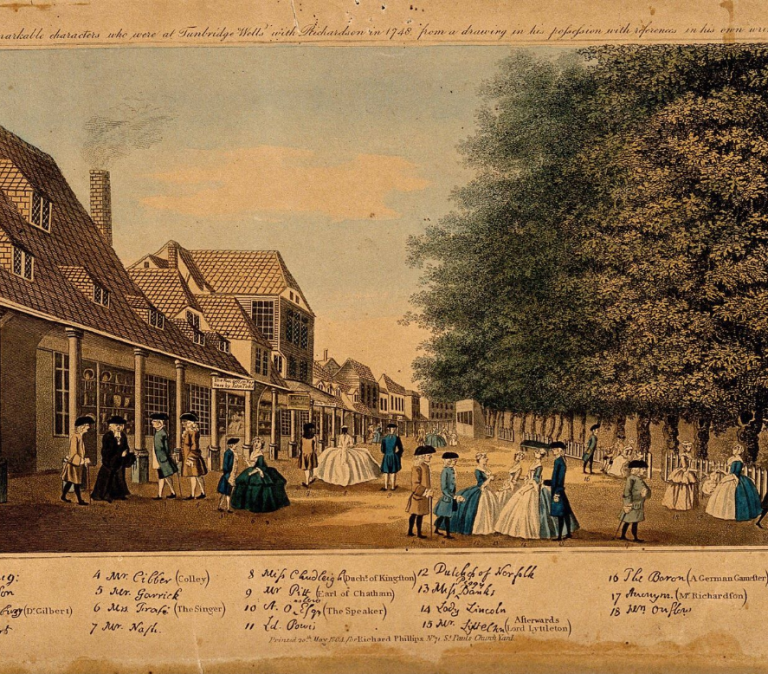 rkable characters who were at Tunbridge Wells with Richardson in 1748 from a drawing in his possession with references in his own writ
4 Mr. Cibber (Colley)
5 Mr. Garrick
6 Mrs Frasi (The Singer)
7 Mr. Nash.
(Dr Gilbert)
8 Miss Chudleigh (Duchs. of Kingston)
9 Mr Pitt (Earl of Chatham)
10 A. O Esqr (The Speaker)
11 Ld. Powis
12 Dutchess of Norfolk
13 Miss Banks
14 Lady Lincoln
15 Mr. Lyttelton (Afterwards Lord Lyttleton)
16 The Baron (A German Gamester)
17 Anonym. (Mr. Richardson)
18 Mrs Onslow
Printed 20th. May 1804 for Richard Phillips No. 71 St. Pauls Church Yard.